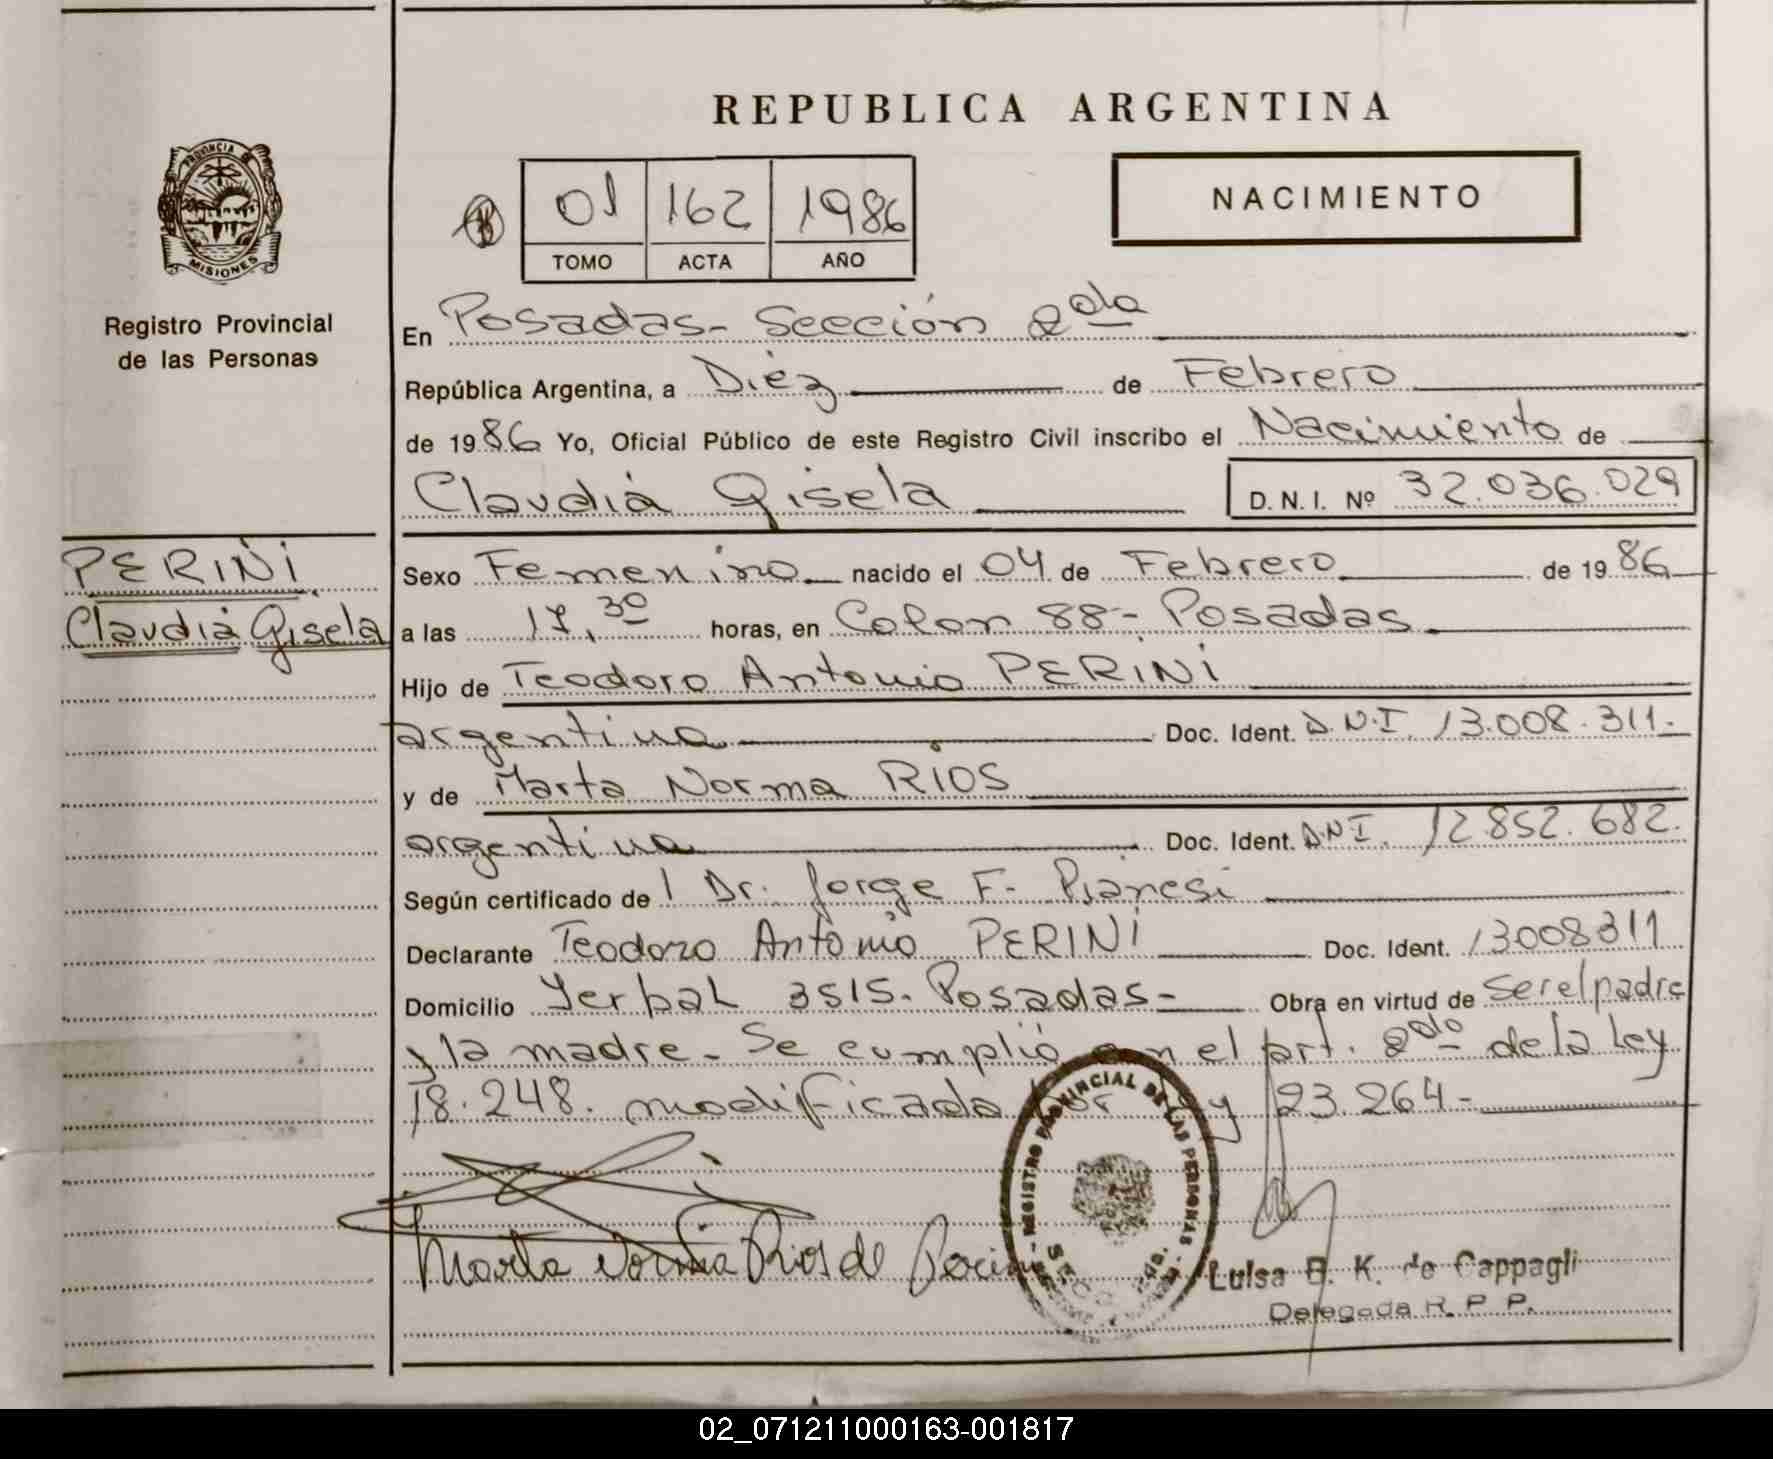 REPUBLICA ARGENTINA
PROVINCIA DE
MISIONES
Registro Provincial
de las Personas
01 162 1986
TOMO ACTA AÑO
NACIMIENTO
En Posadas - Sección 2da
República Argentina, a Diéz de Febrero
de 1986 Yo, Oficial Público de este Registro Civil inscribo el Nacimiento de
Claudia Gisela D. N. I. Nº 32.036.029
PERINI
Claudia Gisela
Sexo Femenino nacido el 04 de Febrero de 1986
a las 17,30 horas, en Colon 88 - Posadas
Hijo de Teodoro Antonio PERINI
argentina Doc. Ident. D.N.I. 13.008.311.-
y de Marta Norma RIOS
argentina Doc. Ident. D.N.I. 12.852.682.
Según certificado de l Dr. Jorge F. Pianesi
Declarante Teodoro Antonio PERINI Doc. Ident. 13008311
Domicilio Yerbal 3515. Posadas - Obra en virtud de Ser el padre
y la madre - Se cumplió con el art. 2do de la Ley
18.248. modificada por Ley 23.264 -
Marta Norma Rios de Perini
REGISTRO PROVINCIAL DE LAS PERSONAS
Luisa E. K. de Cappagli
Delegada R. P. P.
02_071211000163-001817